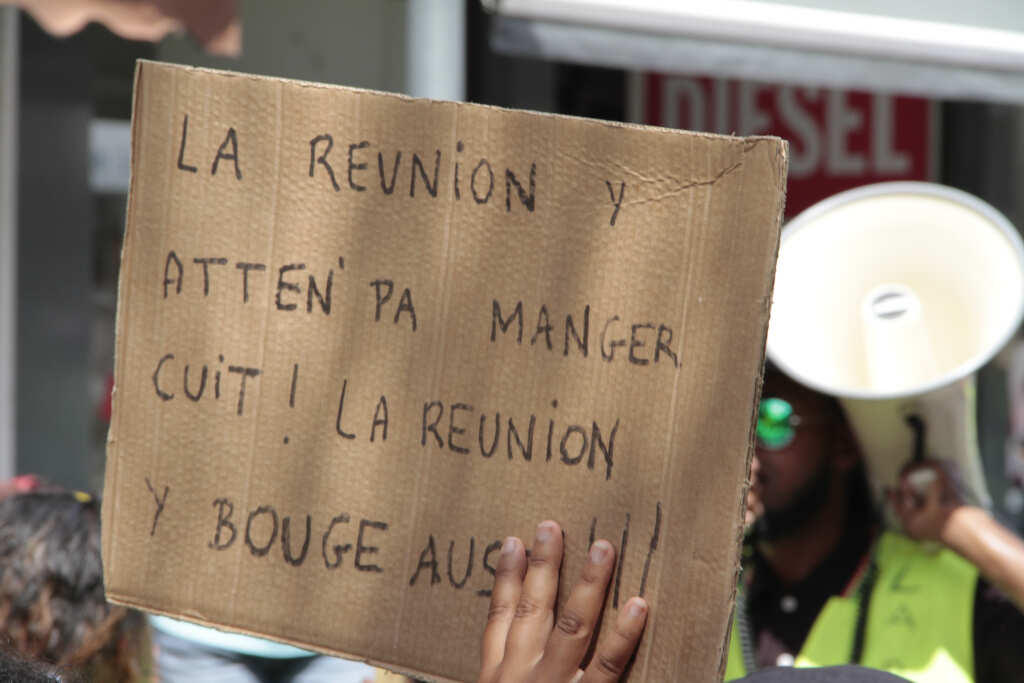 LA REUNION Y
ATTEN' PA MANGER
CUIT ! LA REUNION
Y BOUGE AUS !!!
DIESEL